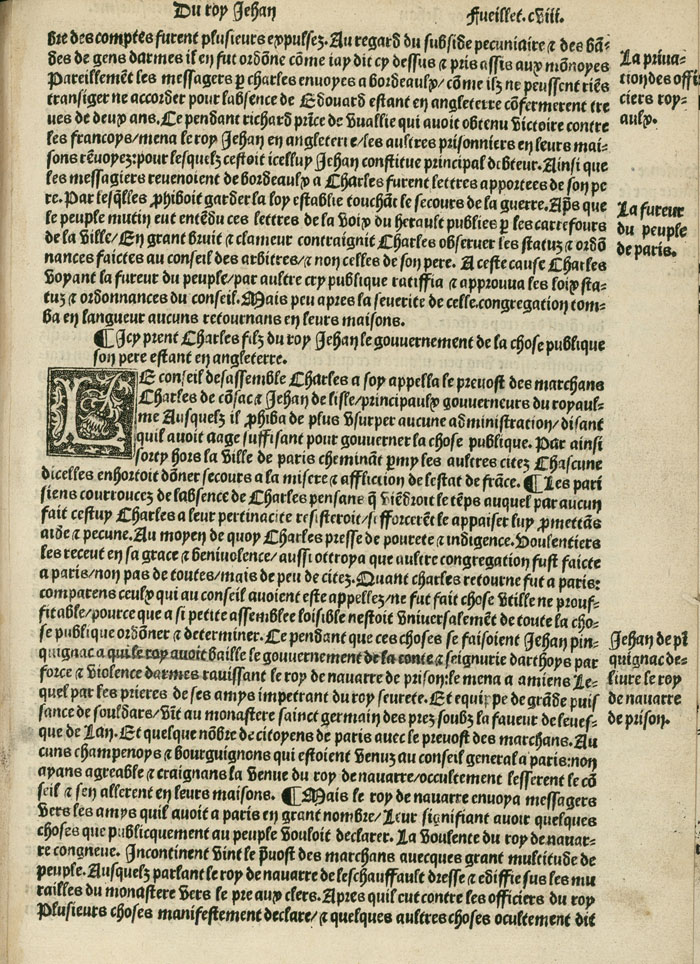 Du roy Jehan
Fueillet. cviii.
bre des comptes furent plusieurs expulsez. Au regard du subside pecuniaire ⁊ des bā⸗
des de gens darmes il en fut ordōne cōme iay dit cy dessus ⁊ pris assis aux mōnoyes
Pareillemēt les messagers ꝑ charles envoyes a bordeaulx/ cōme ilz ne peussent riēs
transiger ne accorder pour labsence de Edouard estant en angleterre cōfermerent tre
ues de deux ans. Ce pendant richard prīce de vuallie qui avoit obtenu victoire contre
les francoys/mena le roy Jehan en angleterre/les aultres prisonniers en leurs mai⸗
sons rēvoyez:pour lesquelz cestoit icelluy Jehan constitue principal debteur. Ainsi que
les messagiers revenoient de bordeaulx a Charles furent lettres apportees de son pe
re. Par lesq̄lles ꝓhiboit garder la loy establie touchāt le secours de la guerre. Ap̄s que
le peuple mutin eut entēdu ces lettres de la voix du herault publies ꝑ les carrefours
de la ville/ En grant bruit ⁊ clameur contraignit Charles observer les statuz ⁊ ordō
nances faictes au conseil des arbitres/⁊ non celles de son pere. A ceste cause Charles
voyant la fureur du peuple/par aultre cry publique ratiffia ⁊ approuva les loix sta⸗
tuz ⁊ ordonnances du conseil. Mais peu apres la severite de celle.congregation tom⸗
ba en langueur aucuns retournans en leurs maisons.
¶Icy prent Charles filz du roy Jehan le gouvernement de la chose publique
son pere estant en angleterre.
LE conseil desassemble Charles a soy appella le prevost des marchans
Charles de cōsac ⁊ Jehan de lisle/principaulx gouverneurs du royaul⸗
me Ausquelz il ꝓhiba de plus vsurper aucune administration/ disant
quil avoit aage suffisant pour gouverner la chose publique. Par ainsi
sorty hors la ville de paris chemināt ꝑmy les aultres citez Chascune
dicelles enhortoit dōner secours a la misere ⁊ affliction de lestat de frāce. ¶Les pari
siens courroucez de labsence de Charles pensans q̄ viēdroit le tēps auquel par aucun
fait cestuy Charles a leur pertinacite resisteroit/sefforcerēt le appaiser luy ꝓmettās
aide ⁊ pecune. Au moyen de quoy Charles presse de pourete ⁊ indigence. Voulentiers
les receut en sa grace ⁊ benivolence/ aussi ottroya que aultre congregation fust faicte
a paris/non pas de toutes/mais de peu de citez. Quant charles retourne fut a paris:
comparens ceulx qui au conseil avoient este appellez/ne fut fait chose vtille ne prouf⸗
fitable/pource que a si petite assemblee loisible nestoit vniversalemēt de toute la cho⸗
se publique ordōner ⁊ determiner. Ce pendant que ces choses se faisoient Jehan pin⸗
quignac a qui le roy avoit baille le gouvernement de la conte ⁊ seignurie darthoys par
force ⁊ violence darmes ravissant le roy de navarre de prison:le mena a amiens Le⸗
quel par les prieres de ses amys impetrant du roy seurete. Et equippe de grāde puis
sance de souldars/vīt au monastere sainct germain des prez soubz la faveur de levef⸗
que de Lan. Et quelque nōbre de citoyens de paris avec le prevost des marchans. Au
cuns champenoys ⁊ bourguignons qui estoient venuz au conseil general a paris:non
ayans agreable ⁊ craignans la venue du roy de navarre/occultement lesserent le cō
seil ⁊ sen allerent en leurs maisons. ¶Mais le roy de navarre envoya messagers
vers les amys quil avoit a paris en grant nombre/Leur signifiant avoir quelques
choses que publicquement au peuple vouloit declarer. La voulente du roy de navar⸗
re congneue. Incontinent vint le p̄vost des marchans avecques grant multitude de
peuple. Ausquelz parlant le roy de navarre de leschauffault dresse ⁊ ediffie sus les mu
railles du monastere vers le pre aux clers. Apres quil eut contre les officiers du roy
Plusieurs choses manifestement declare/⁊ quelques aultres choses ocultement dit
La priua⸗
tion des offi
ciers roy⸗
aulx.
La fureur
du peuple
de paris.
Jehan de pī
quignac de⸗
livre le roy
de navarre
de prison.